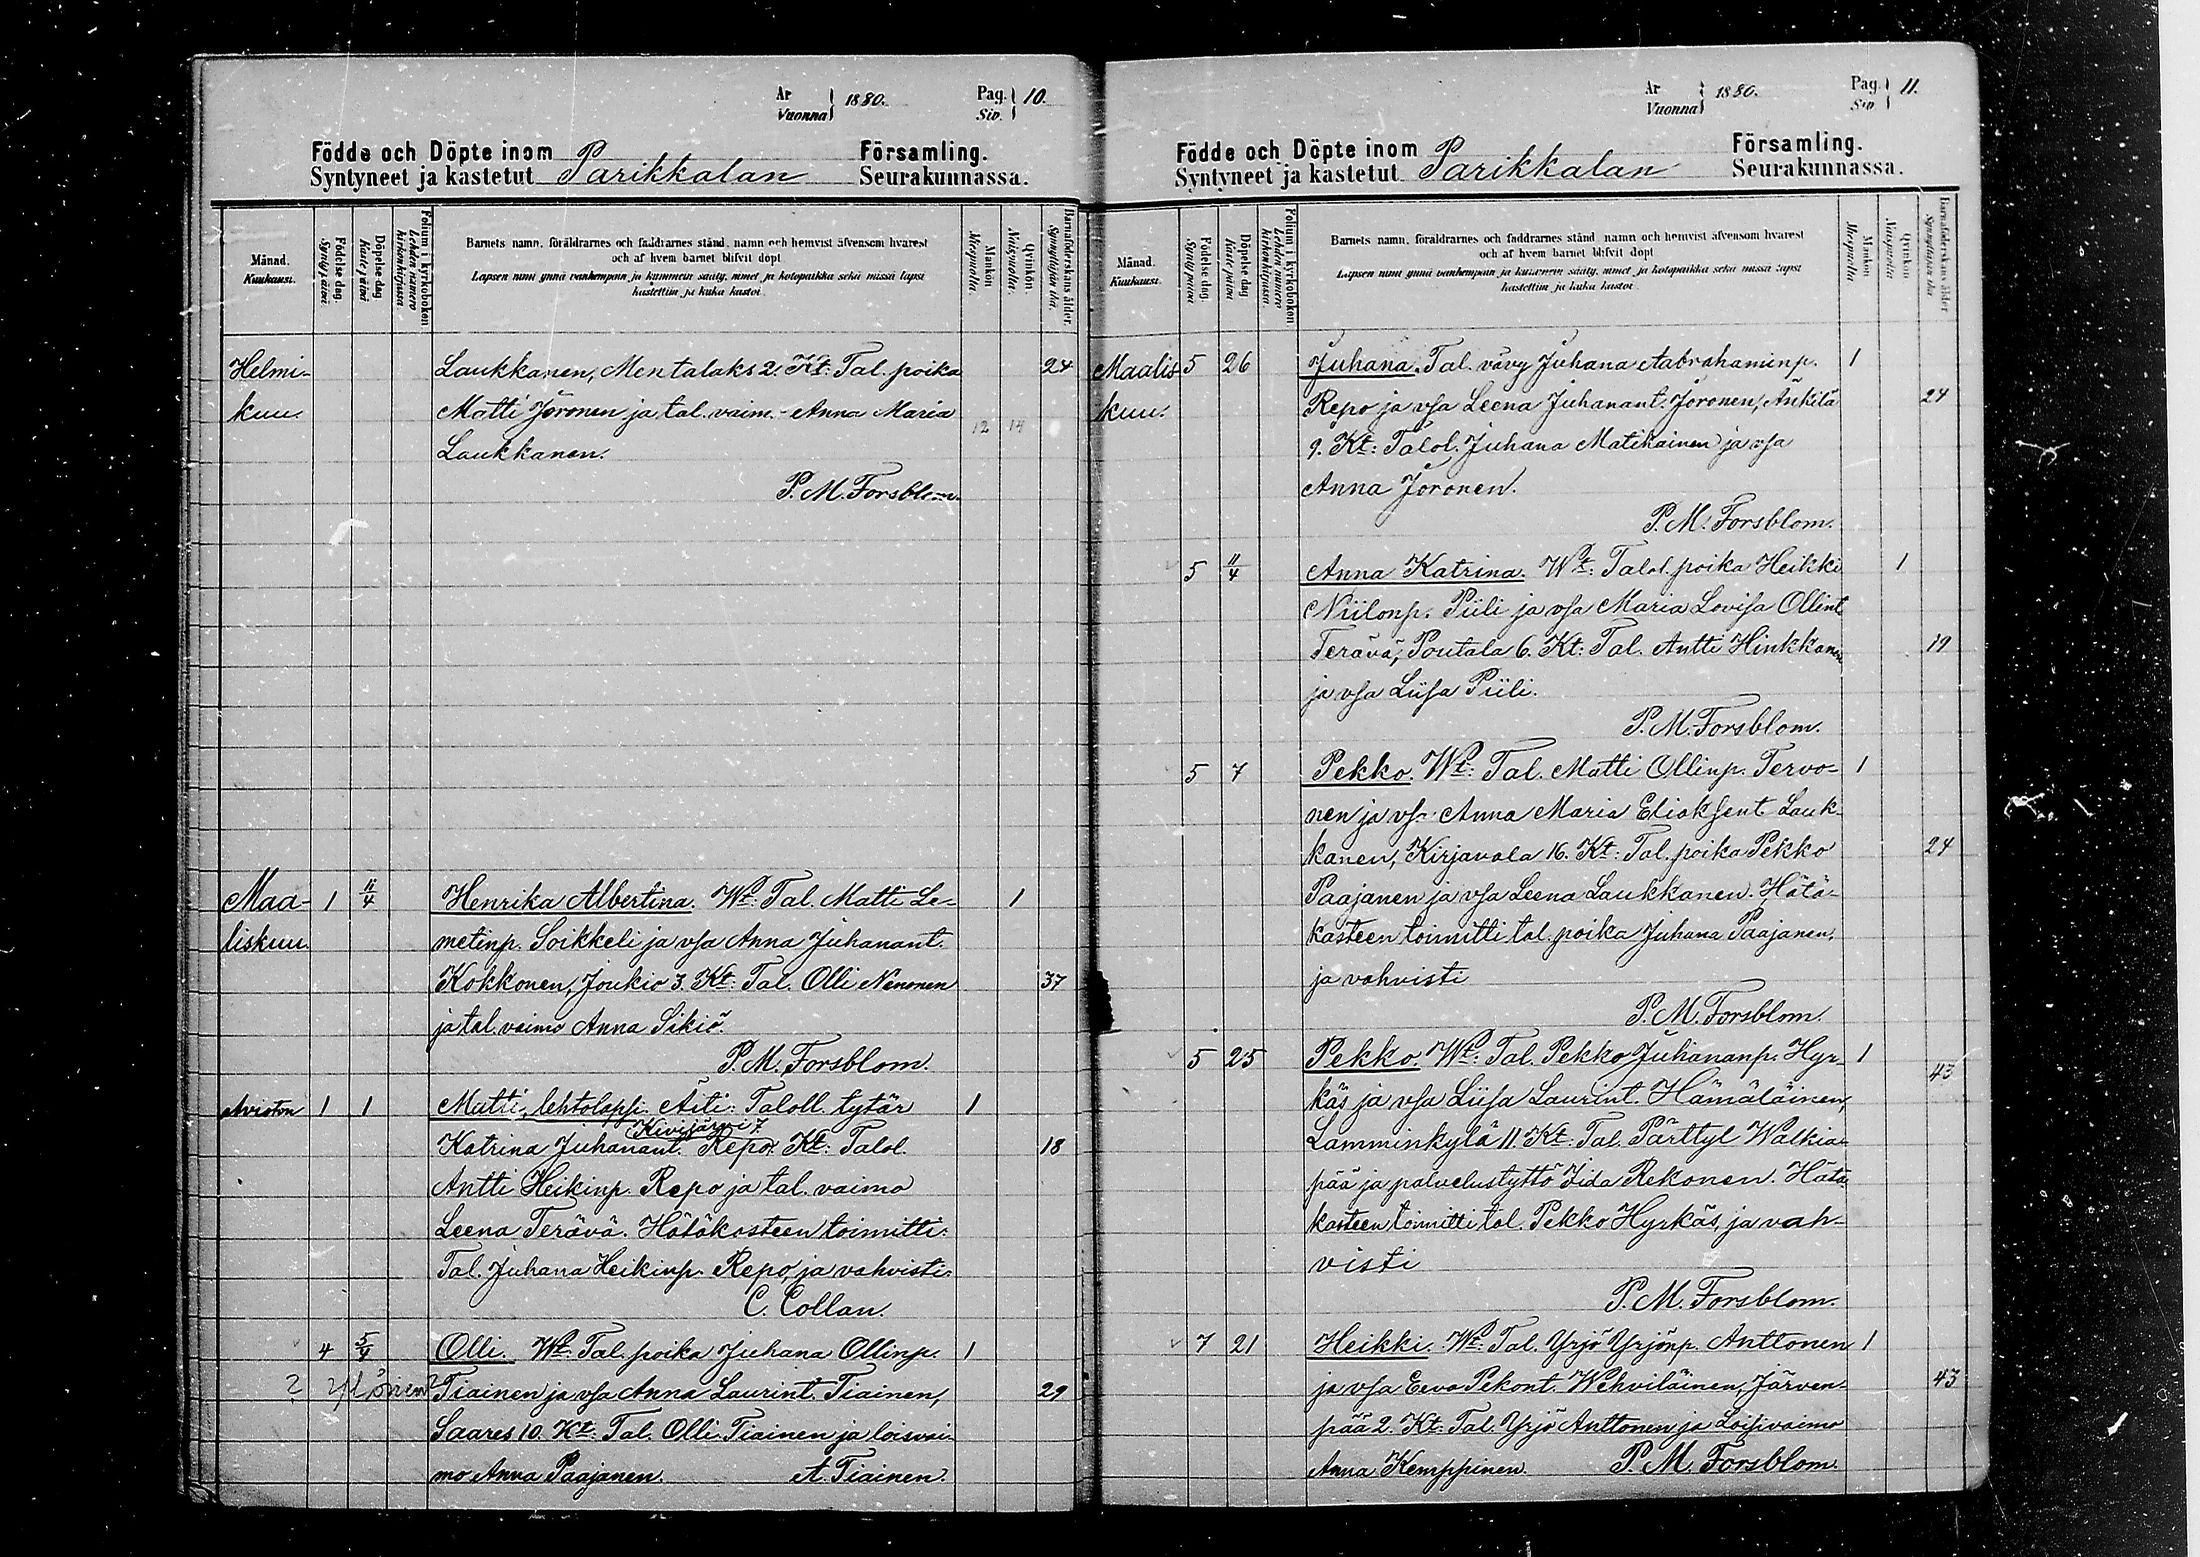 År
Vuonna 1880.
Pag.
Siv. 10.
Födde och Döpte inom
Syntyneet ja kastetut Parikkalan
Församling.
Seurakunnassa.
Månad.
Kuukausi.
Födelse dag.
Syntymäpäivä.
Döpelse dag
Kastepäivä
Folium i kyrkoboken
Lehden numero kirkonkirjassa
Barnets namn, föräldrarnes och faddrarnes stånd, namn och hemvist äfvensom hvarest
och af hvem barnet blifvit döpt
Lapsen nimi ynnä vanhempain ja kummein sääty, nimet ja kotopaikka sekä missä lapsi
kastettiin ja kuka kastoi.
Mankön
Miespuolia.
Qvinkön.
Naispuolia.
Barnaföderskans ålder.
Synnyttäjän ikä.
Helmi- Laukkanen, Mentalaks 2. Kt: Tal. poika 24
kuu. Matti Joronen ja tal. vaim. Anna Maria
12 14
Laukkanen.
P. M. Forsblom.
Maa- 1 11/4 Henrika Albertina. Wt: Tal. Matti Le- 1
liskuu. metinp. Soikkeli ja vsa Anna Juhanant.
Kokkonen, Joukio 3. Kt: Tal. Olli Nenonen 37
ja tal. vaimo Anna Sikiö.
P. M. Forsblom.
Avioton 1 1 Matti, lehtolapsi. Äiti: Taloll. tytär 1
Kivijärvi 7.
Katrina Juhanant. Repo. Kt: Talol. 18
Antti Heikinp. Repo ja tal. vaimo
Leena Terävä. Hätäkasteen toimitti
Tal. Juhana Heikinp. Repo, ja vahvisti
C. Collan.
4 5/4 Olli. Wt: Tal. poika Juhana Ollinp. 1
? Ylönen? Tiainen ja vsa Anna Laurint. Tiainen, 29
Saares 10. Kt: Tal. Olli Tiainen ja loisvai-
mo Anna Paajanen. A. Tiainen.
År
Vuonna 1880.
Pag.
Siv 11.
Födde och Döpte inom
Syntyneet ja kastetut Parikkalan
Församling.
Seurakunnassa.
Månad.
Kuukausi.
Födelse dag.
Syntymäpäivä
Döpelse dag
Kastepäivä
Folium i kyrkoboken
Lehden numero kirkonkirjassa.
Barnets namn, föräldrarnes och faddrarnes stånd, namn och hemvist äfvensom hvarest
och af hvem barnet blifvit döpt
Lapsen nimi ynnä vanhempain ja kummein sääty, nimet ja kotopaikka sekä missä lapsi
kastettiin ja kuka kastoi.
Mankön
Miespuolia
Qvinkön.
Naispuolia
Barnaföderskans ålder
Synnyttäjän ikä
Maalis 5 26 Juhana. Tal. vävy Juhana Aabrahaminp. 1
kuu. Repo ja vsa Leena Juhanant. Joronen, Änkilä 24
9. Kt: Talol. Juhana Matikainen ja vsa
Anna Joronen.
P. M. Forsblom.
5 11/4 Anna Katrina. Wt: Talol. poika Heikki 1
Niilonp. Piili ja vsa Maria Lovisa Ollint
Terävä, Poutala 6. Kt: Tal. Antti Hinkkanen 19
ja vsa Liisa Piili.
P. M. Forsblom.
5 7 Pekko. Wt: Tal. Matti Ollinp. Tervo- 1
nen ja vsa Anna Maria Eliaksent Lauk-
kanen, Kirjavala 16. Kt: Tal. poika Pekko 24
Paajanen ja vsa Leena Laukkanen. Hätä-
kasteen toimitti tal. poika Juhana Paajanen,
ja vahvisti
P. M. Forsblom.
5 25 Pekko. Wt: Tal. Pekko Juhananp. Hyr- 1 43
käs ja vsa Liisa Laurint. Hämäläinen,
Lamminkylä 11. Kt: Tal. Pärttyl Walkia-
pää ja palvelustyttö Iida Rekonen. Hätä
kasteen toimitti tal. Pekko Hyrkäs, ja vah-
visti
P. M. Forsblom.
7 21 Heikki. Wt: Tal. Yrjö Yrjönp. Anttonen 1
ja vsa Eeva Pekont. Wehviläinen, Järven- 43
pää 2. Kt: Tal. Yrjö Anttonen ja Loisivaimo
Anna Kemppinen. P. M. Forsblom.